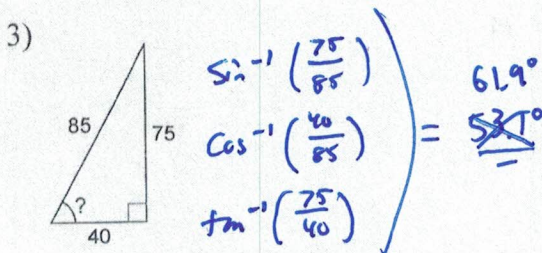 3)
85
75
?
40
sin⁻¹ (75/85)
cos⁻¹ (40/85)
tan⁻¹ (75/40)
=
61.9°
53.1°